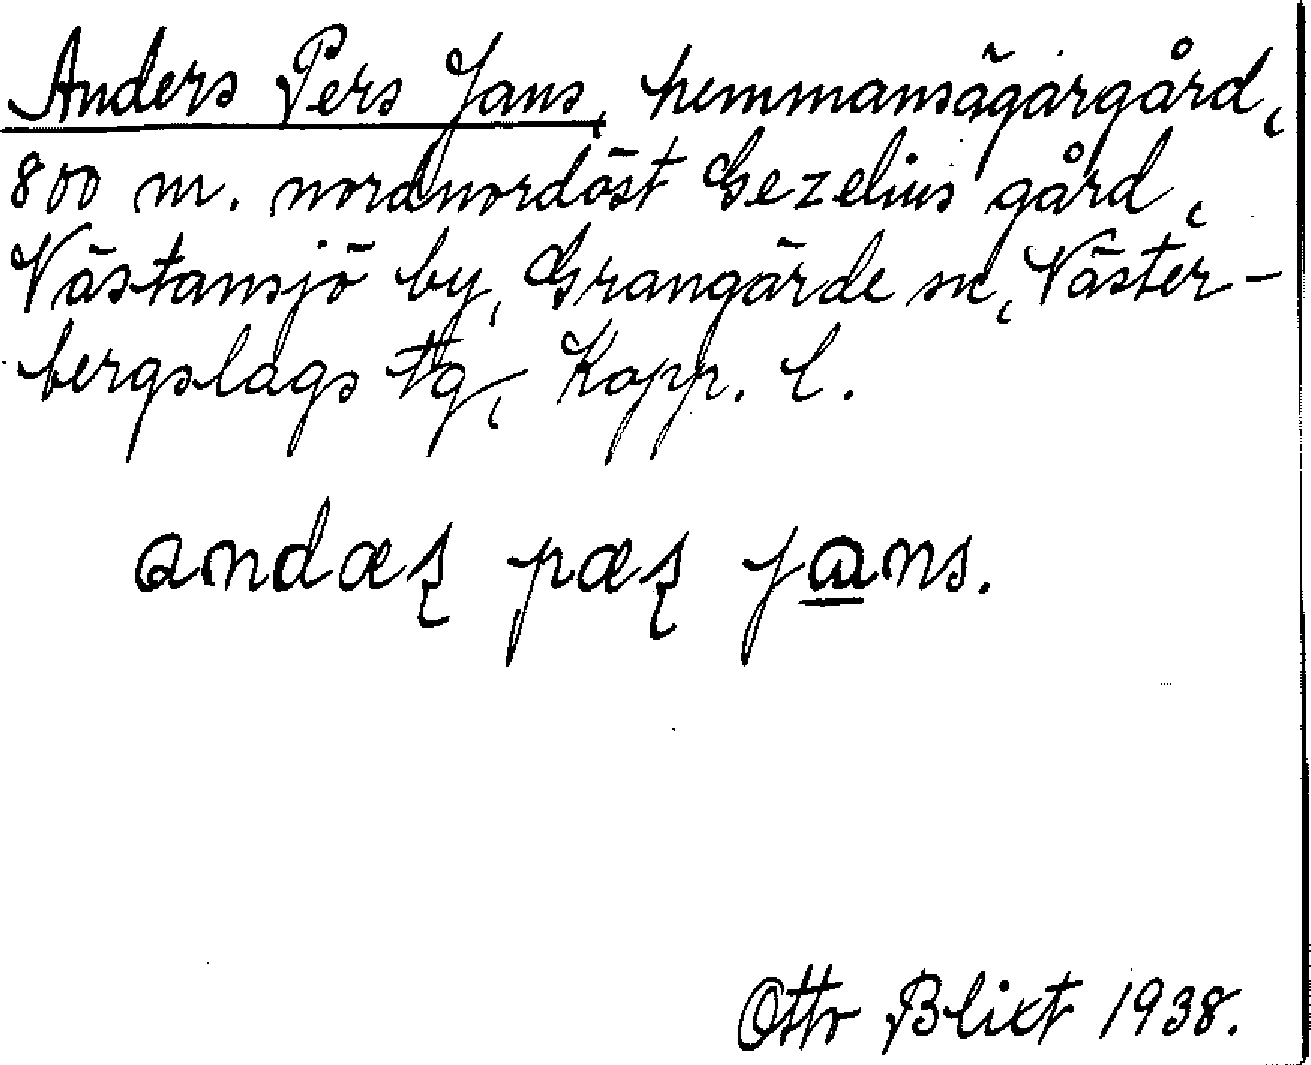 Anders Pers Jans, hemmansägargård,
800 m. nordnordöst Gezelius gård,
Västansjö by, Grangärde sn, Väster-
bergslags tg, Kopp. l.
andæʂ pæʂ jans.
Otto Blixt 1938.